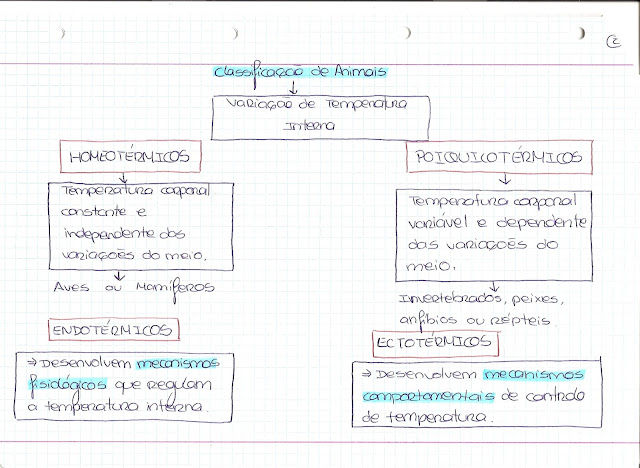 ②
Classificação de Animais
Variação de Temperatura
Interna
HOMEOTÉRMICOS
Temperatura corporal
constante e
independente das
variações do meio.
Aves ou Mamíferos
ENDOTÉRMICOS
⇒ Desenvolvem mecanismos
fisiológicos que regulam
a temperatura interna.
POIQUILOTÉRMICOS
Temperatura corporal
variável e dependente
das variações do
meio.
Invertebrados, peixes,
anfíbios ou répteis.
ECTOTÉRMICOS
⇒ Desenvolvem mecanismos
comportamentais de controlo
de temperatura.